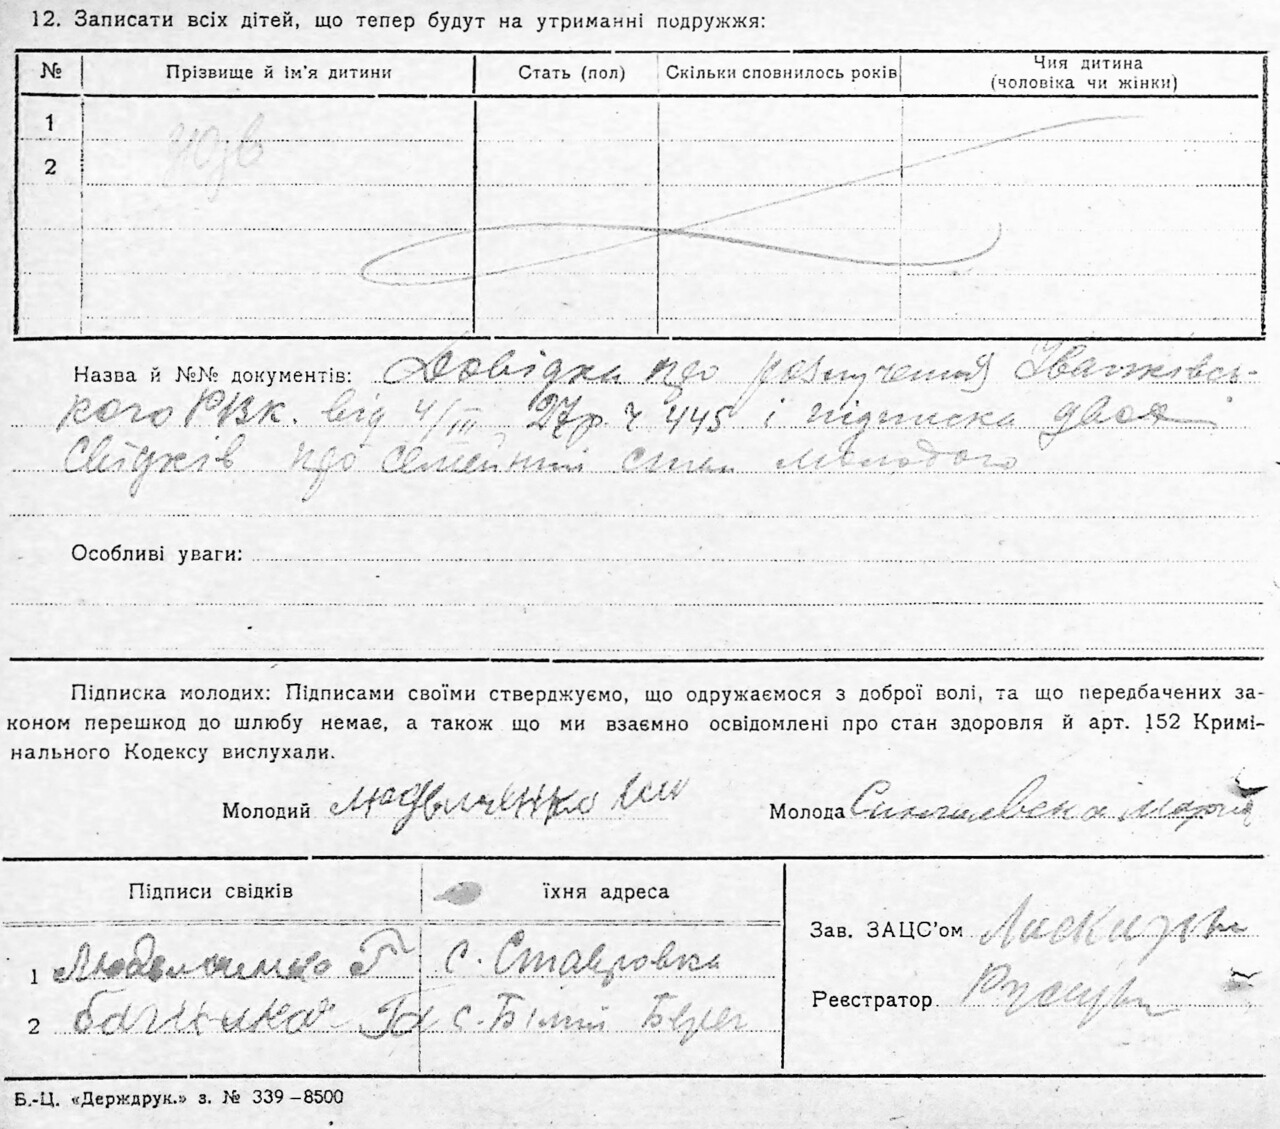 12. Записати всіх дітей, що тепер будут на утриманні подружжя:
№ Прізвище й ім'я дитини Стать (пол) Скільки сповнилось років Чия дитина
(чоловіка чи жінки)
1
2
Назва й №№ документів: Довідка про розлучення Іванківсь-
кого РВК. від 4/III 27р. ч 445 і підписка двох
свідків про семейний стан молодого
Особливі уваги:
Підписка молодих: Підписами своїми стверджуємо, що одружаємося з доброї волі, та що передбачених за-
коном перешкод до шлюбу немає, а також що ми взаємно освідомлені про стан здоровля й арт. 152 Кримі-
нального Кодексу вислухали.
Молодий Молода Мария
Підписи свідків їхня адреса
Зав. ЗАЦС'ом
1 с. Ставровка
Реєстратор
2 с. Білий Берег
Б.-Ц. «Держдрук.» з. № 339—8500